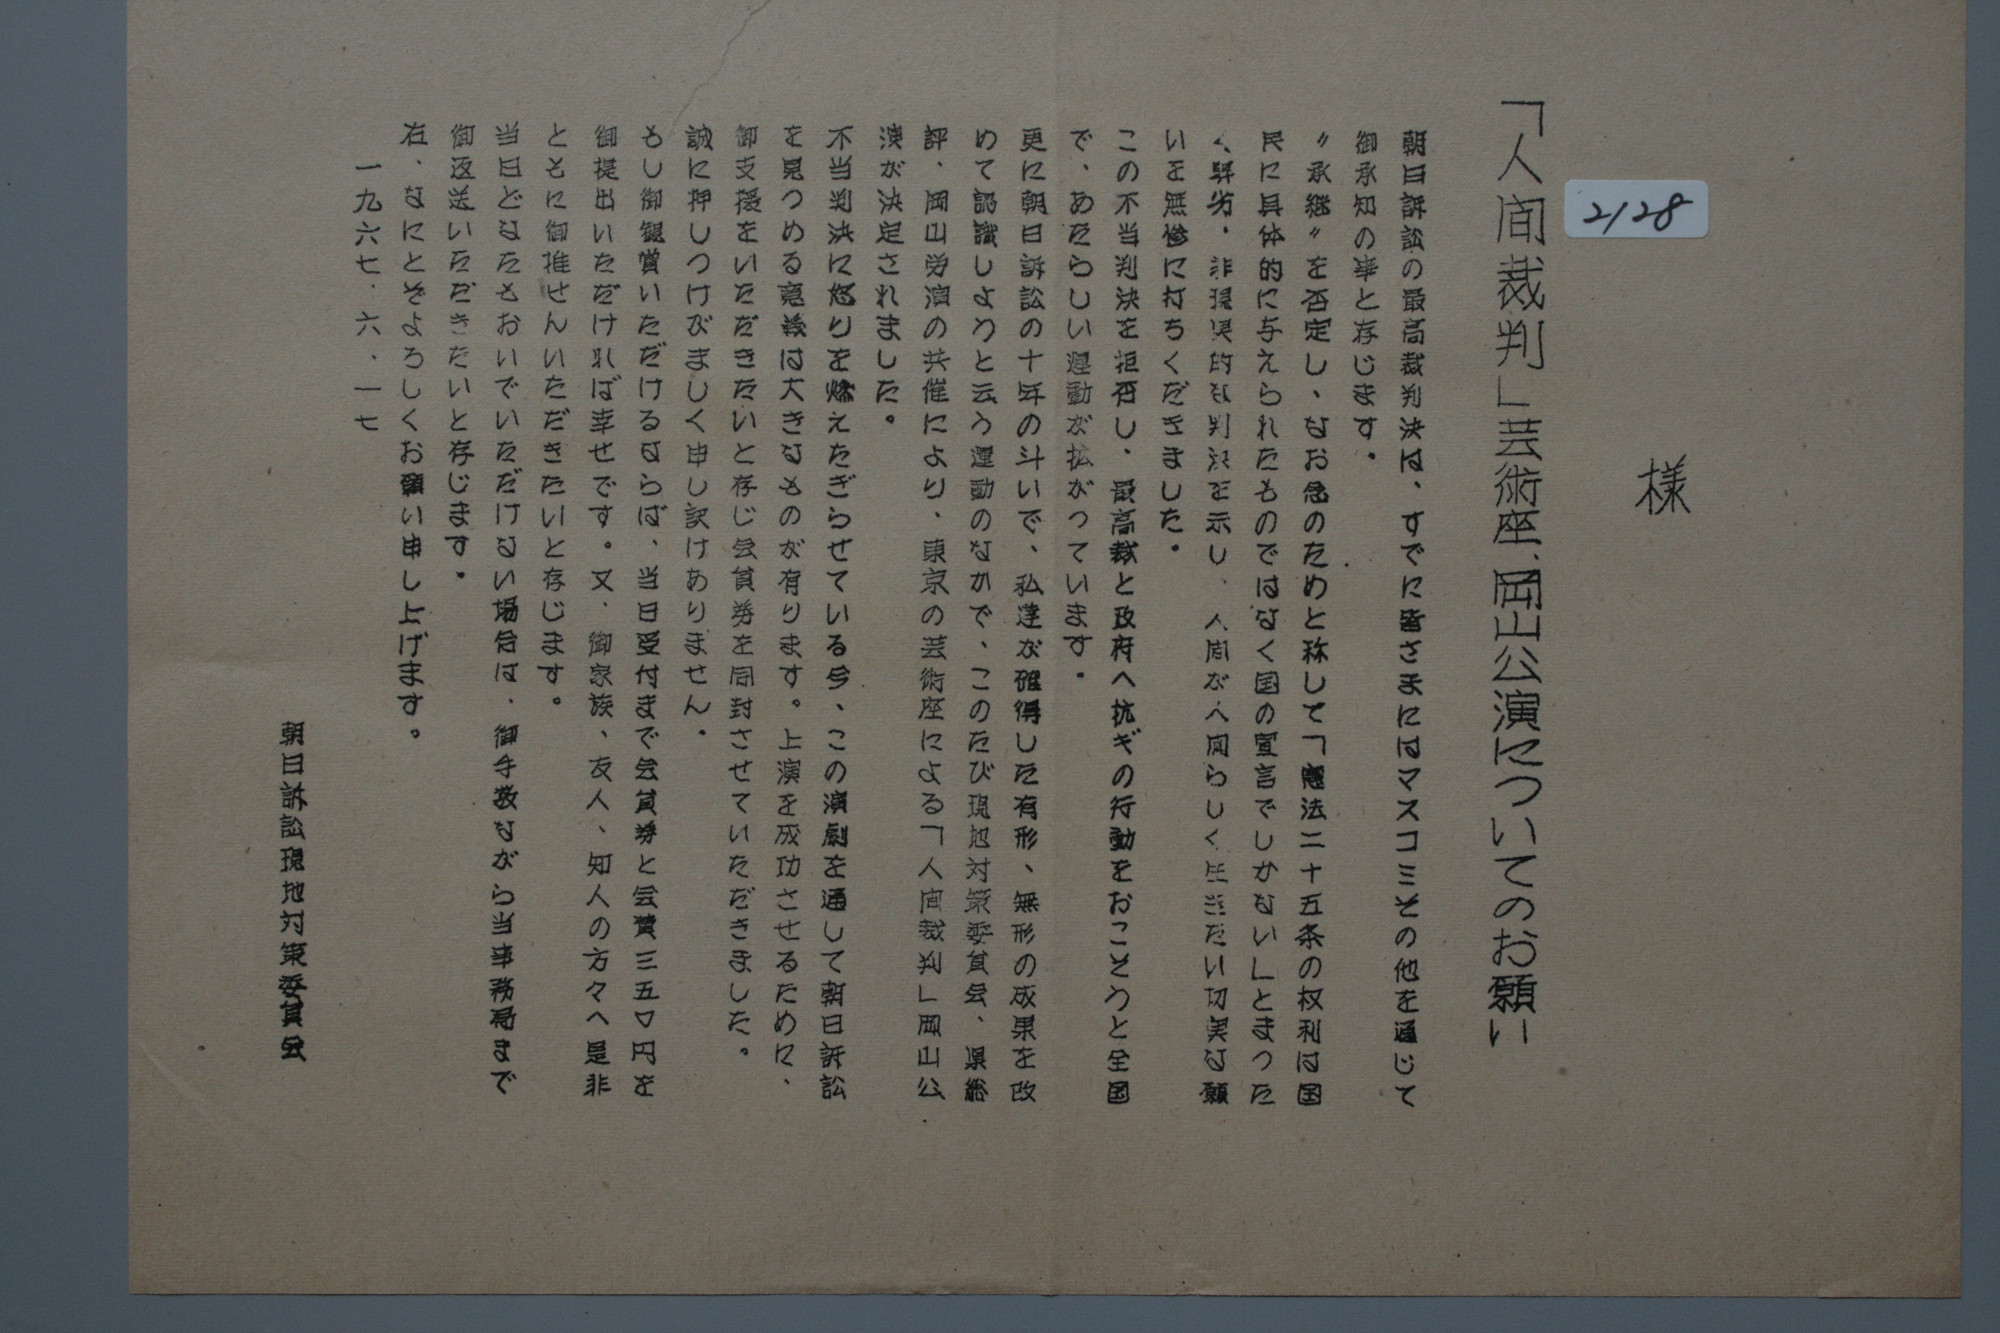 2128
様
「人間裁判」芸術座、岡山公演についてのお願い
朝日訴訟の最高裁判決は、すでに皆さまにはマスコミその他を通じて
御承知の事と存じます。
〃承継〃を否定し、なお念のためと称して「憲法二十五条の権利は国
民に具体的に与えられたものではなく国の宣言でしかない」とまった
く卑劣、非現実的な判決を示し、人間が人間らしく生きたい切実な願
いを無惨に打ちくだきました。
この不当判決を拒否し、最高裁と政府へ抗ギの行動をおこそうと全国
で、あたらしい運動が拡がっています。
更に朝日訴訟の十年の斗いで、私達が確得した有形、無形の成果を改
めて認識しようと云う運動のなかで、このたび現地対策委員会、県総
評、岡山労演の共催により、東京の芸術座による「人間裁判」岡山公
演が決定されました。
不当判決に怒りを燃えたぎらせている今、この演劇を通して朝日訴訟
を見つめる意義は大きなものが有ります。上演を成功させるために、
御支援をいただきたいと存じ会員券を同封させていただきました。
誠に押しつけがましく申し訳けありません。
もし御観賞いただけるならば、当日受付まで会員券と会費三五〇円を
御提出いただければ幸せです。又、御家族、友人、知人の方々へ是非
ともに御推せんいただきたいと存じます。
当日どなたもおいでいただけない場合は、御手数ながら当事務局まで
御返送いただきたいと存じます。
右、なにとぞよろしくお願い申し上げます。
一九六七、六、一七
朝日訴訟現地対策委員会